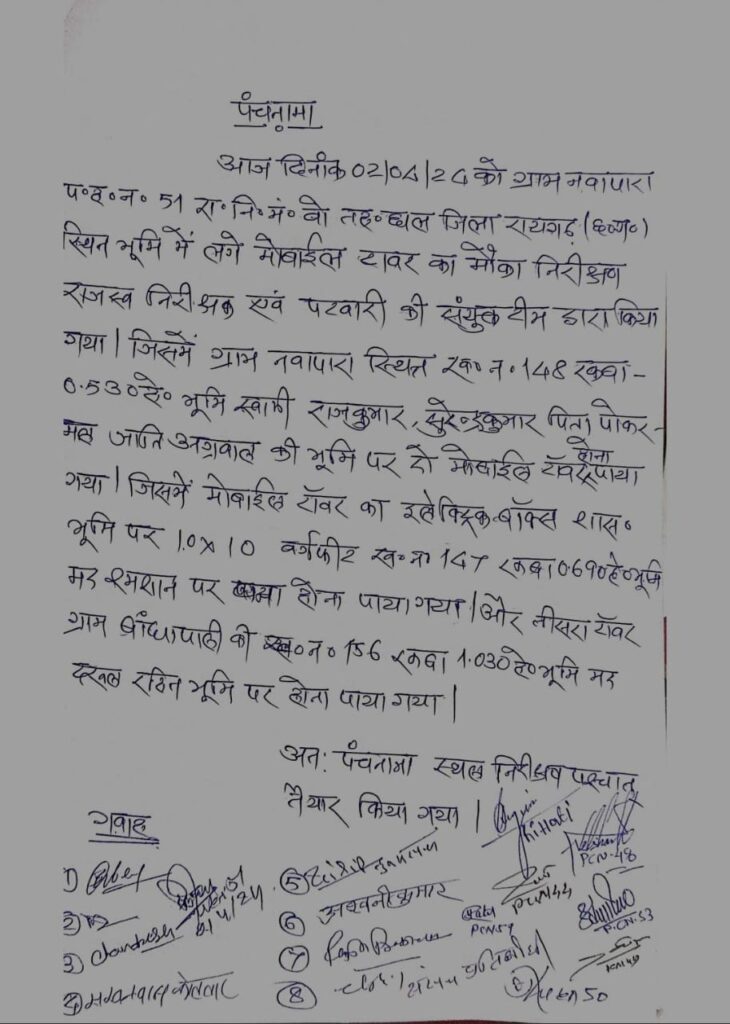 पंचनामा
आज दिनांक 02/04/24 को ग्राम नवापारा
प०ह०न० 51 रा०नि०मं० बो तह० छाल जिला रायगढ़ (छ०ग०)
स्थित भूमि में लगे मोबाईल टावर का मौका निरीक्षण
राजस्व निरीक्षक एवं पटवारी की संयुक्त टीम द्वारा किया
गया। जिसमें ग्राम नवापारा स्थित ख० न० 148 रकबा -
0.530 हे० भूमि स्वामी राजकुमार, सुरेन्द्रकुमार पिता पोकर-
मल जाति अग्रवाल की भूमि पर दो मोबाईल टॉवर होना पाया
गया। जिसमें मोबाईल टॉवर का इलेक्ट्रिक बॉक्स शास०
भूमि पर 10 x 10 वर्गफीट ख० न० 147 रकबा 0.690 हे० भूमि
मद श्मशान पर होना पाया गया। और तीसरा टॉवर
ग्राम बांधापाली की ख० न० 156 रकबा 1.030 हे० भूमि मद
दखल रहित भूमि पर होना पाया गया।
अतः पंचनामा स्थल निरीक्षण पश्चात
तैयार किया गया।
गवाह
1)
2)
3) Chandresh
4) कोतवार
5)
6) अश्वनी कुमार
7)
8)
PCN-48
PCN 44
PCN 54
PCN-53
PCN 49
50